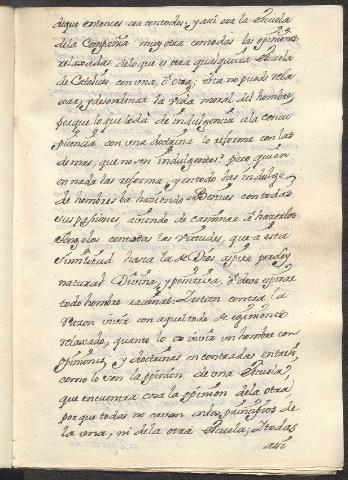 que entonces con todos, y asi era la Escuela
de la Compañia muy otra con todas las opiniones
relaxadas de lo que es otra qualquiera Escuela
de Catolicos con una, ò otra; esta no puede rela
xar, y desordenar la vida moral del hombre,
porque lo que le dà de indulgencia a la concu
piscencia con una doctrina lo reforma con las
demas, que no son indulgentes? pero quien
en nada las reforma, y en todo las indulge,
de hombres ha haciendo Bestias con todas
sus pasiones, aviendo de caminar à hacerlos
Angeles con todas las virtudes, que a esta
similitud hasta la de Dios aspira por Ley
natural Divina, y positiva, ò debe aspirar
todo hombre racional: Y estan contra la
razon vivir con aquel todo de opiniones
relaxado, quanto lo es vivir un hombre con
opiniones, y doctrinas encontradas entre si
como lo son la opinion de una Escuela,
que encuentra con la opinion de la otra
porque todas no caven en los principios de
la una, ni de la otra Escuela; Y todas
asi